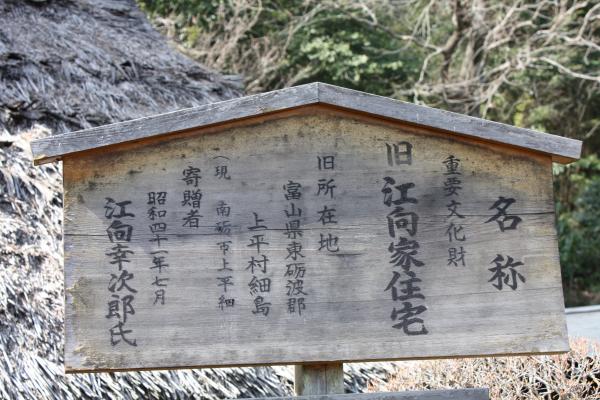 名称
重要文化財
旧江向家住宅
旧所在地
富山県東砺波郡
上平村細島
(現 南砺市上平細
寄贈者
昭和四十一年七月
江向幸次郎氏